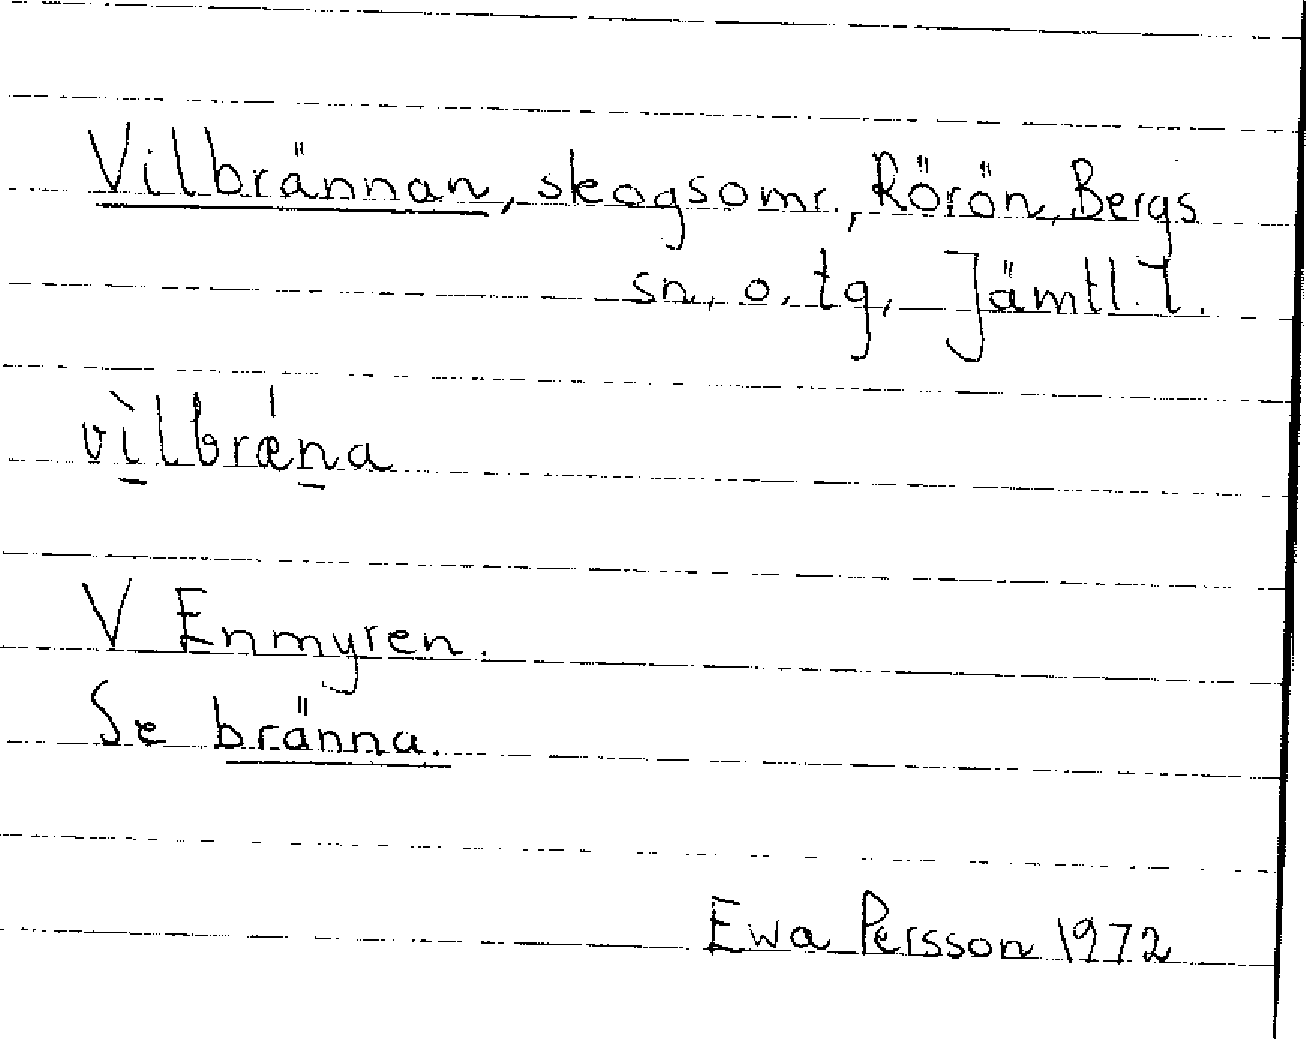 Vilbrännan, skogsomr., Rörön, Bergs
sn. o. tg, Jämtl. l.
vı̱̀lbrǽṉa
V Enmyren.
Se bränna.
Ewa Persson 1972